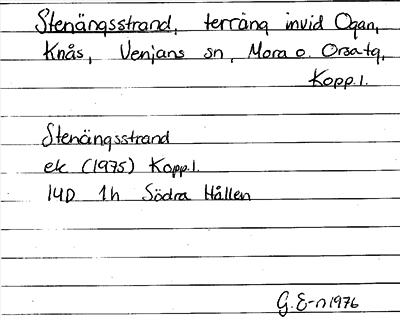 Stenängsstrand, terräng invid Ogan,
Knås, Venjans sn, Mora o. Orsa tg,
Kopp.l.
Stenängsstrand
ek (1975) Kopp.l.
14D 1h Södra Hållen
G.E-n 1976